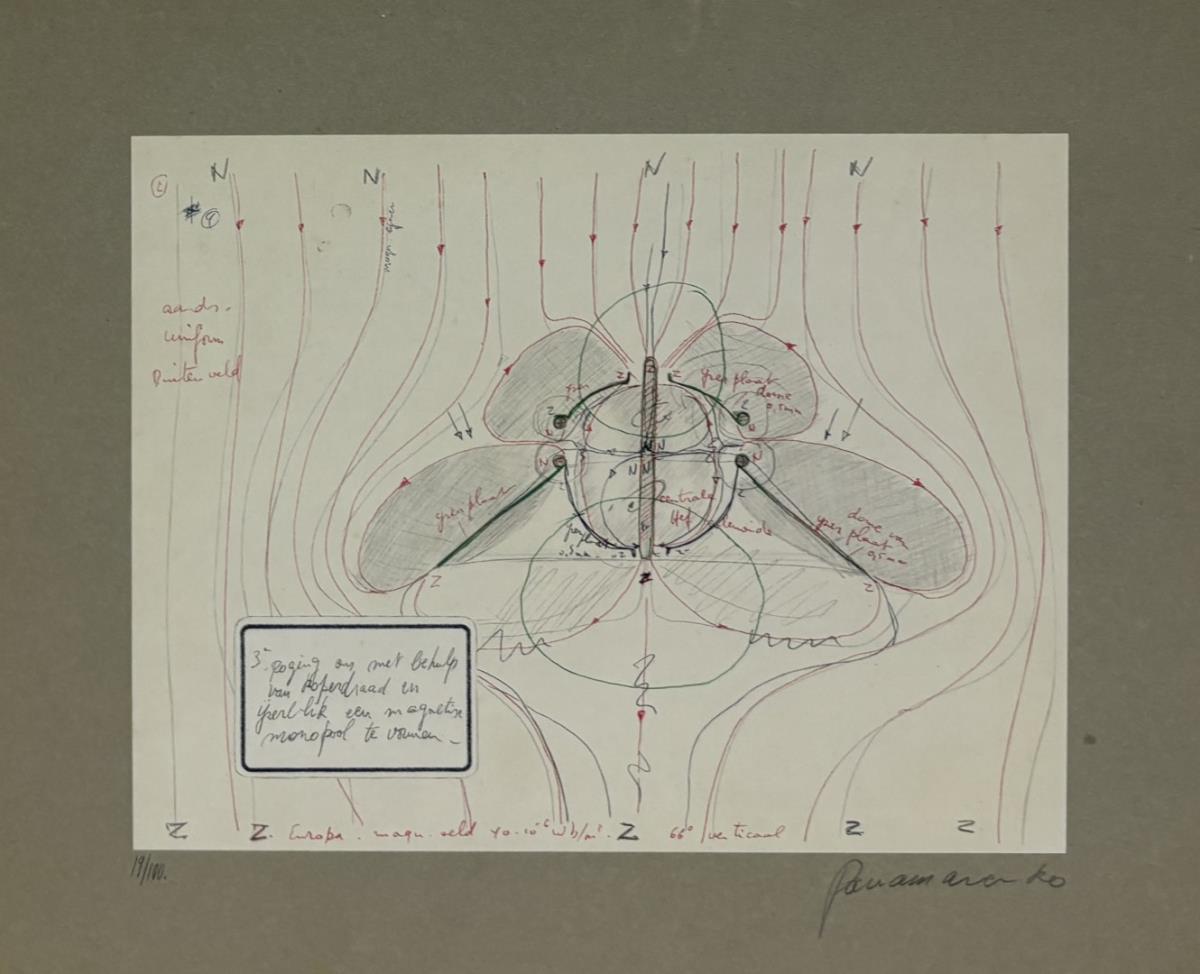 N N N N
aards.
uniform
Buitenveld
yzer plaat
dome
0,5mm
yzer plaat
centrale
dome van
yzer plaat
0,5mm
3e poging om met behulp
van koperdraad en
ijzerblik een magnetise
monopool te vormen -
Z Z. Europa. magn. veld 40.10⁻⁶ Wb/m² Z 66° verticaal Z Z
19/100.
Panamarenko